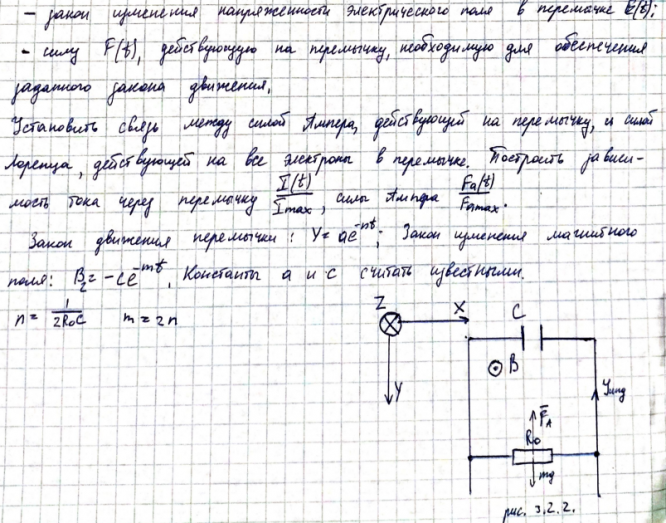 - закон изменения напряженности электрического поля в перемычке E(t);
- силу F(t), действующую на перемычку, необходимую для обеспечения
заданного закона движения.
Установить связь между силой Ампера, действующей на перемычку, и силой
Лоренца, действующей на все электроны в перемычке. Построить зависи-
мость тока через перемычку I(t)/Imax, силы Ампера Fa(t)/Famax.
Закон движения перемычки: Y=ae^-nt; Закон изменения магнитного
поля: Bz=-ce^-mt. Константы a и c считать известными.
n= 1/2R0C m=2n
Z X C
B
Y
Yинд
FA
R0
mg
рис. 3.2.2.